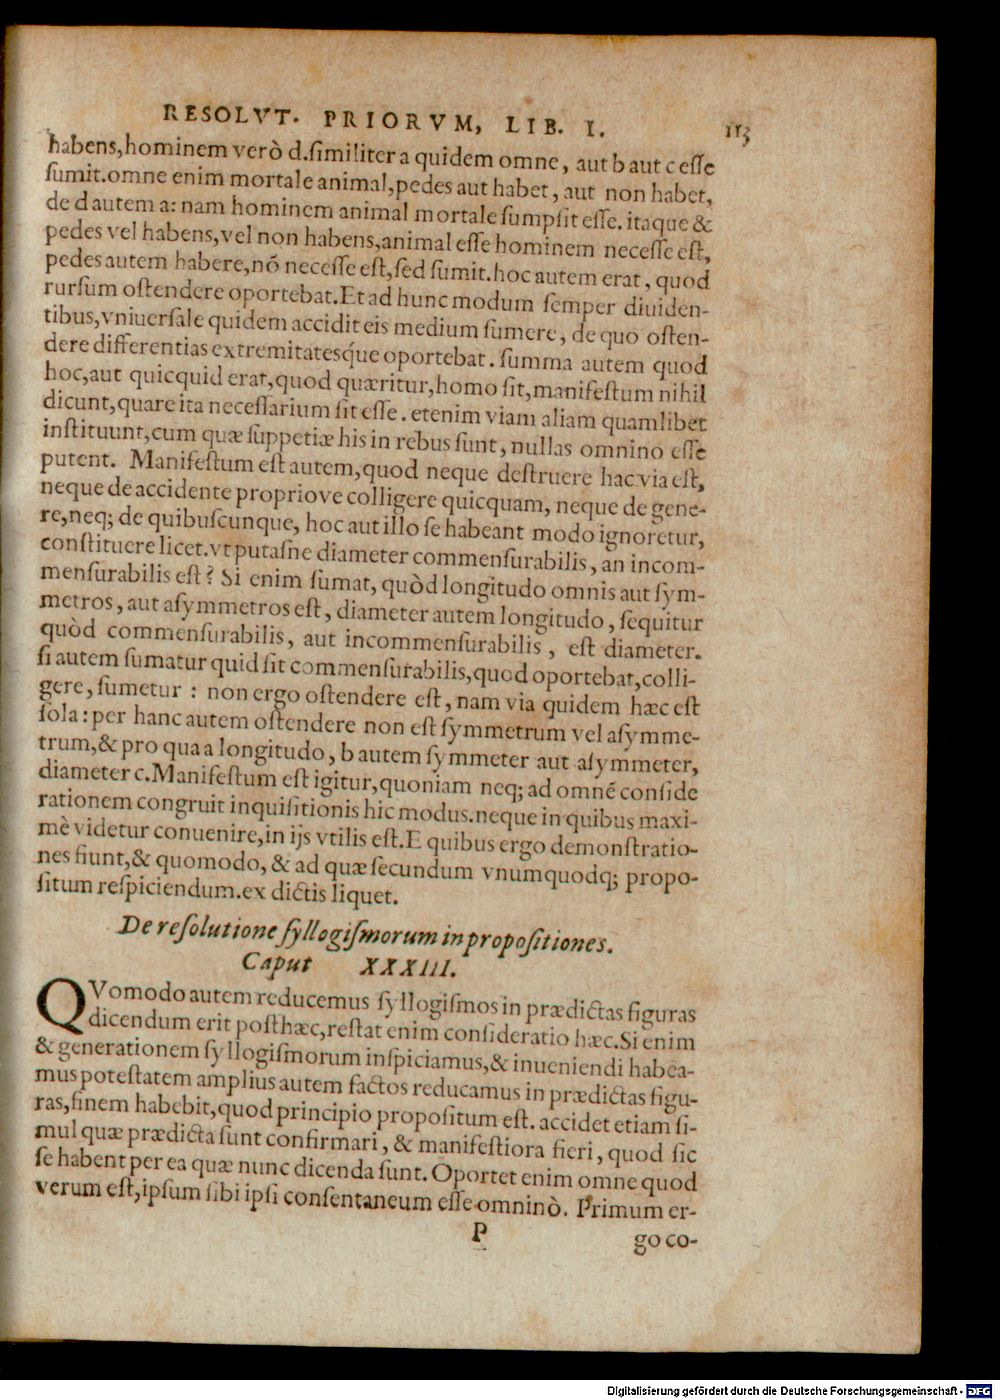 RESOLVT. PRIORVM, LIB. I. 113
habens,hominem verò d.ſimiliter a quidem omne, aut b aut c eſſe
ſumit.omne enim mortale animal,pedes aut habet, aut non habet,
de d autem a: nam hominem animal mortale ſumpſit eſſe. itaque &
pedes vel habens,vel non habens,animal eſſe hominem neceſſe eſt,
pedes autem habere,nõ neceſſe eſt,ſed ſumit.hoc autem erat, quod
rurſum oſtendere oportebat.Et ad hunc modum ſemper diuiden-
tibus,vniuerſale quidem accidit eis medium ſumere, de quo oſten-
dere differentias extremitatesq́ue oportebat. ſumma autem quod
hoc,aut quicquid erat,quod quæritur,homo ſit,manifeſtum nihil
dicunt,quare ita neceſſarium ſit eſſe. etenim viam aliam quamlibet
inſtituunt,cum quæ ſuppetiæ his in rebus ſunt, nullas omnino eſſe
putent. Manifeſtum eſt autem,quod neque deſtruere hac via eſt,
neque de accidente propriove colligere quicquam, neque de gene-
re,neq; de quibuſcunque, hoc aut illo ſe habeant modo ignoretur,
conſtituere licet.vt putaſne diameter commenſurabilis, an incom-
menſurabilis eſt? Si enim ſumat, quòd longitudo omnis aut ſym-
metros, aut aſymmetros eſt, diameter autem longitudo, ſequitur
quòd commenſurabilis, aut incommenſurabilis, eſt diameter.
ſi autem ſumatur quid ſit commenſurabilis,quod oportebat,colli-
gere, ſumetur : non ergo oſtendere eſt, nam via quidem hæc eſt
ſola: per hanc autem oſtendere non eſt ſymmetrum vel aſymme-
trum,& pro qua a longitudo, b autem ſymmeter aut aſymmeter,
diameter c.Manifeſtum eſt igitur,quoniam neq; ad omné conſide
rationem congruit inquiſitionis hic modus.neque in quibus maxi-
mè videtur conuenire,in ijs vtilis eſt.E quibus ergo demonſtratio-
nes fiunt,& quomodo, & ad quæ ſecundum vnumquodq; propo-
ſitum reſpiciendum.ex dictis liquet.
De reſolutione ſyllogiſmorum in propoſitiones.
Caput XXXIII.
QVomodo autem reducemus ſyllogiſmos in prædictas figuras
dicendum erit poſt hæc,reſtat enim conſideratio hæc.Si enim
& generationem ſyllogiſmorum inſpiciamus,& inueniendi habea-
mus poteſtatem amplius autem factos reducamus in prædictas figu-
ras,finem habebit,quod principio propoſitum eſt. accidet etiam ſi-
mul quæ prædicta ſunt confirmari, & manifeſtiora fieri, quod ſic
ſe habent per ea quæ nunc dicenda ſunt. Oportet enim omne quod
verum eſt,ipſum ſibi ipſi conſentaneum eſſe omninò. Primum er-
P go co-
Digitalisierung gefördert durch die Deutsche Forschungsgemeinschaft - DFG